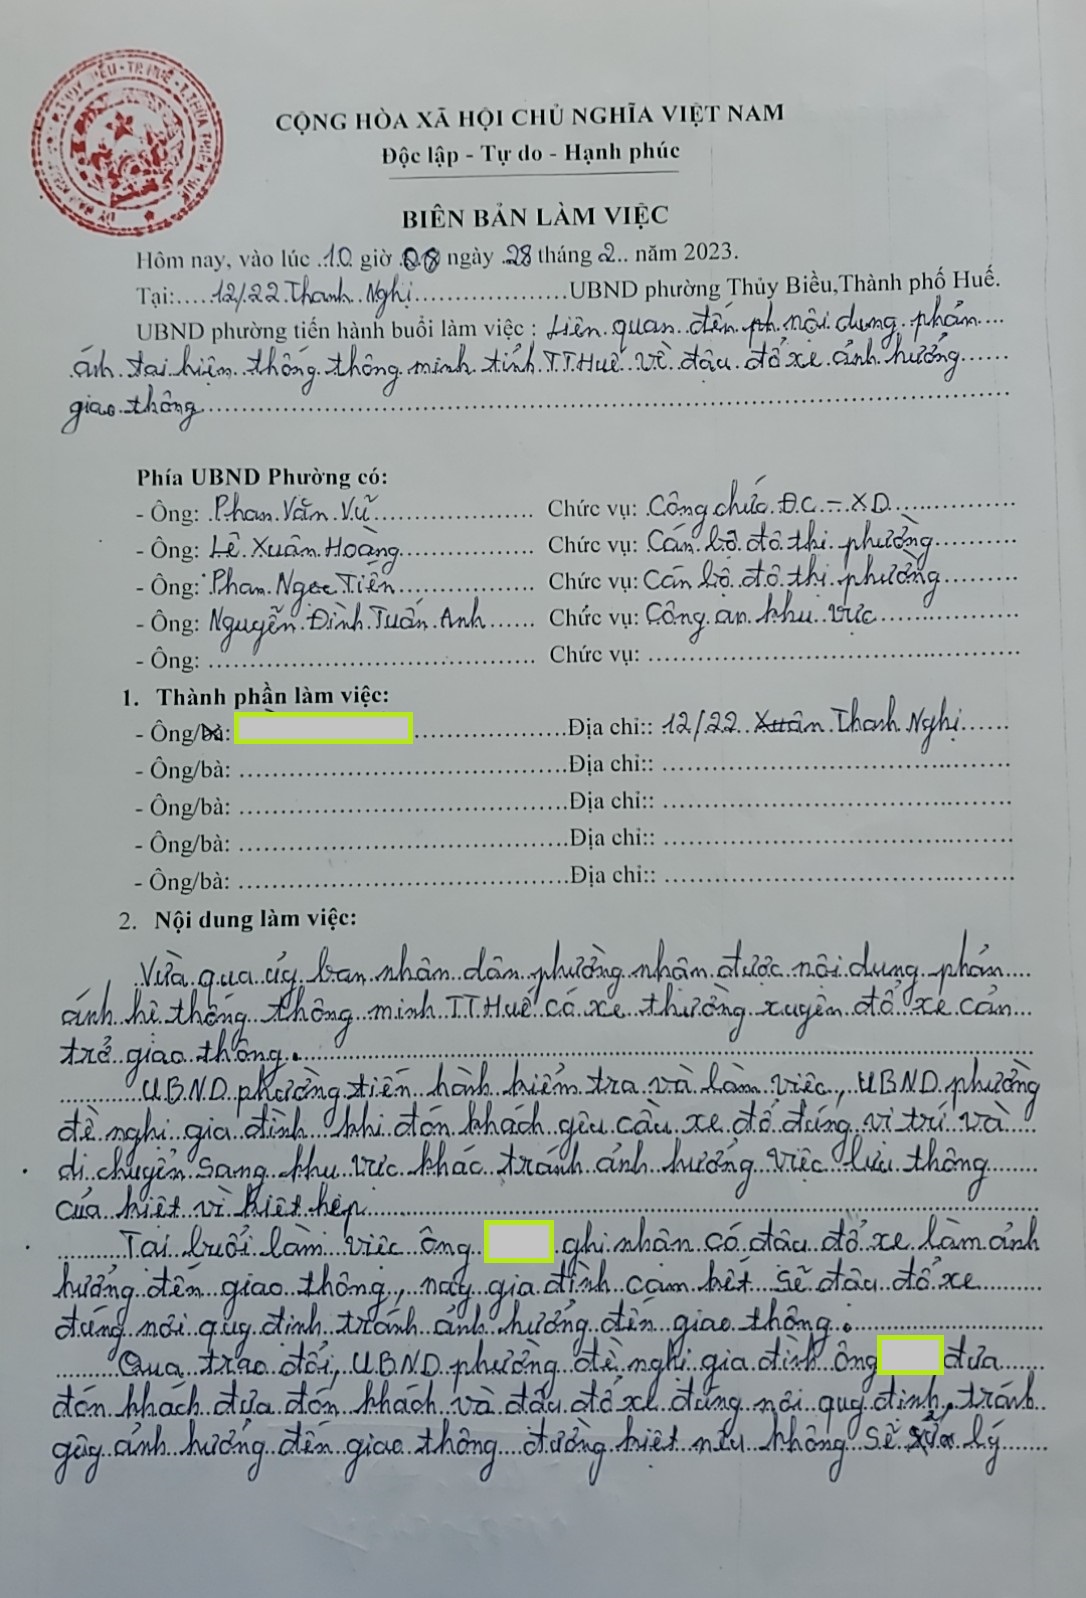 CỘNG HÒA XÃ HỘI CHỦ NGHĨA VIỆT NAM
Độc lập - Tự do - Hạnh phúc
BIÊN BẢN LÀM VIỆC
Hôm nay, vào lúc 10 giờ 08 ngày 28 tháng 2 năm 2023.
Tại: 12/22 Thanh Nghị UBND phường Thủy Biều,Thành phố Huế.
UBND phường tiến hành buổi làm việc : Liên quan đến ph nội dung phản
ánh tại hiện thống thông minh tỉnh T.T.Huế về đậu đổ xe ảnh hưởng
giao thông
Phía UBND Phường có:
- Ông: Phan Văn Vũ Chức vụ: Công chức ĐC - XD
- Ông: Lê Xuân Hoàng Chức vụ: Cán bộ đô thị phường
- Ông: Phan Ngọc Tiến Chức vụ: Cán bộ đô thị phường
- Ông: Nguyễn Đình Tuấn Anh Chức vụ: Công an khu vực
- Ông: Chức vụ:
1. Thành phần làm việc:
- Ông/bà: Địa chỉ:: 12/22 Xuân Thanh Nghị
- Ông/bà: Địa chỉ::
- Ông/bà: Địa chỉ::
- Ông/bà: Địa chỉ::
- Ông/bà: Địa chỉ::
2. Nội dung làm việc:
Vừa qua ủy ban nhân dân phường nhận được nội dung phản
ánh hệ thống thông minh T.T.Huế có xe thường xuyên đổ xe cản
trở giao thông.
UBND phường tiến hành kiểm tra và làm việc, UBND phường
đề nghị gia đình khi đón khách yêu cầu xe đổ đúng vị trí và
di chuyển sang khu vực khác tránh ảnh hưởng việc lưu thông
của kiệt vì kiệt hẹp
Tại buổi làm việc ông ghi nhận có đậu đổ xe làm ảnh
hưởng đến giao thông, nay gia đình cam kết sẽ đậu đổ xe
đúng nơi quy định tránh ảnh hưởng đến giao thông.
Qua trao đổi, UBND phường đề nghị gia đình ông đưa
đón khách đưa đón khách và đậu đổ xe đúng nơi quy định, tránh
gây ảnh hưởng đến giao thông đường kiệt nếu không sẽ xử lý